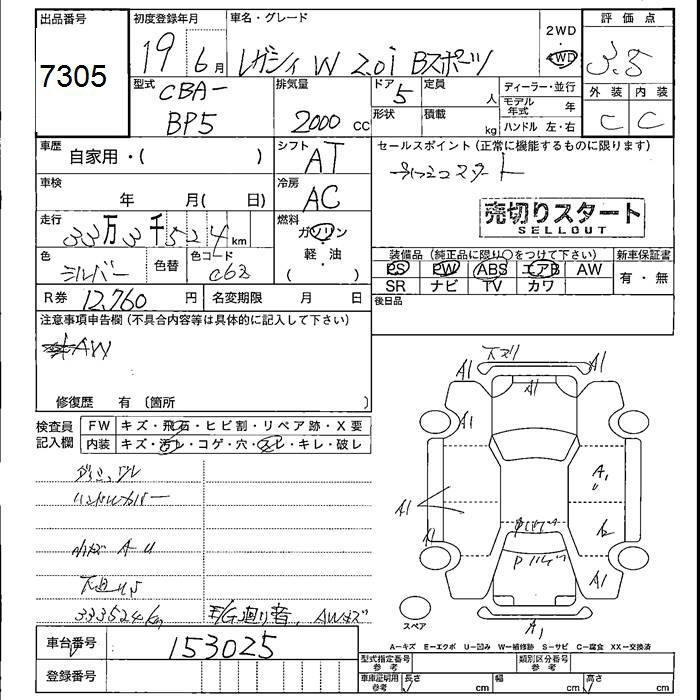 出品番号
7305
初度登録年月
19年 6月
車名・グレード
レガシィ W 2.0i Bスポーツ
2WD
4WD
評価点
3.5
外装 内装
C C
型式
CBA-
BP5
排気量
2000 cc
ドア
5
定員
人
形状
積載
kg
ディーラー・並行
モデル年式 年
ハンドル 左・右
車歴
自家用・( )
シフト
AT
車検
年 月( 日)
冷房
AC
走行
33万3千524km
燃料
ガソリン
・
軽・油
( )
色
シルバー
色替
色コード
C63
R券 12,760円
名変期限 月 日
セールスポイント(正常に機能するものに限ります)
売切りスタート
SELLOUT
装備品(純正品に限り○をつけて下さい)
新車保証書
PS PW ABS エアB AW
SR ナビ TV カワ
有・無
後日品
注意事項申告欄(不具合内容等は具体的に記入して下さい)
AW
修復歴 有(箇所 )
検査員記入欄
FW キズ・飛石・ヒビ割・リペア跡・X要
内装 キズ・汚れ・コゲ・穴・スレ・キレ・破レ
ハンドルカバー
小キズ A-U
333524km
E/G廻り音、AWキズ
車台番号 153025
登録番号
A1
A1
A1
A1
A1
A1
A1
A1
スペア
A-キズ E-エクボ U-凹み W-補修跡 S-サビ C-腐食 XX-交換済
型式指定番号 参考
類別区分番号 参考
車庫証明用 参考
長さ cm
幅 cm
高さ cm